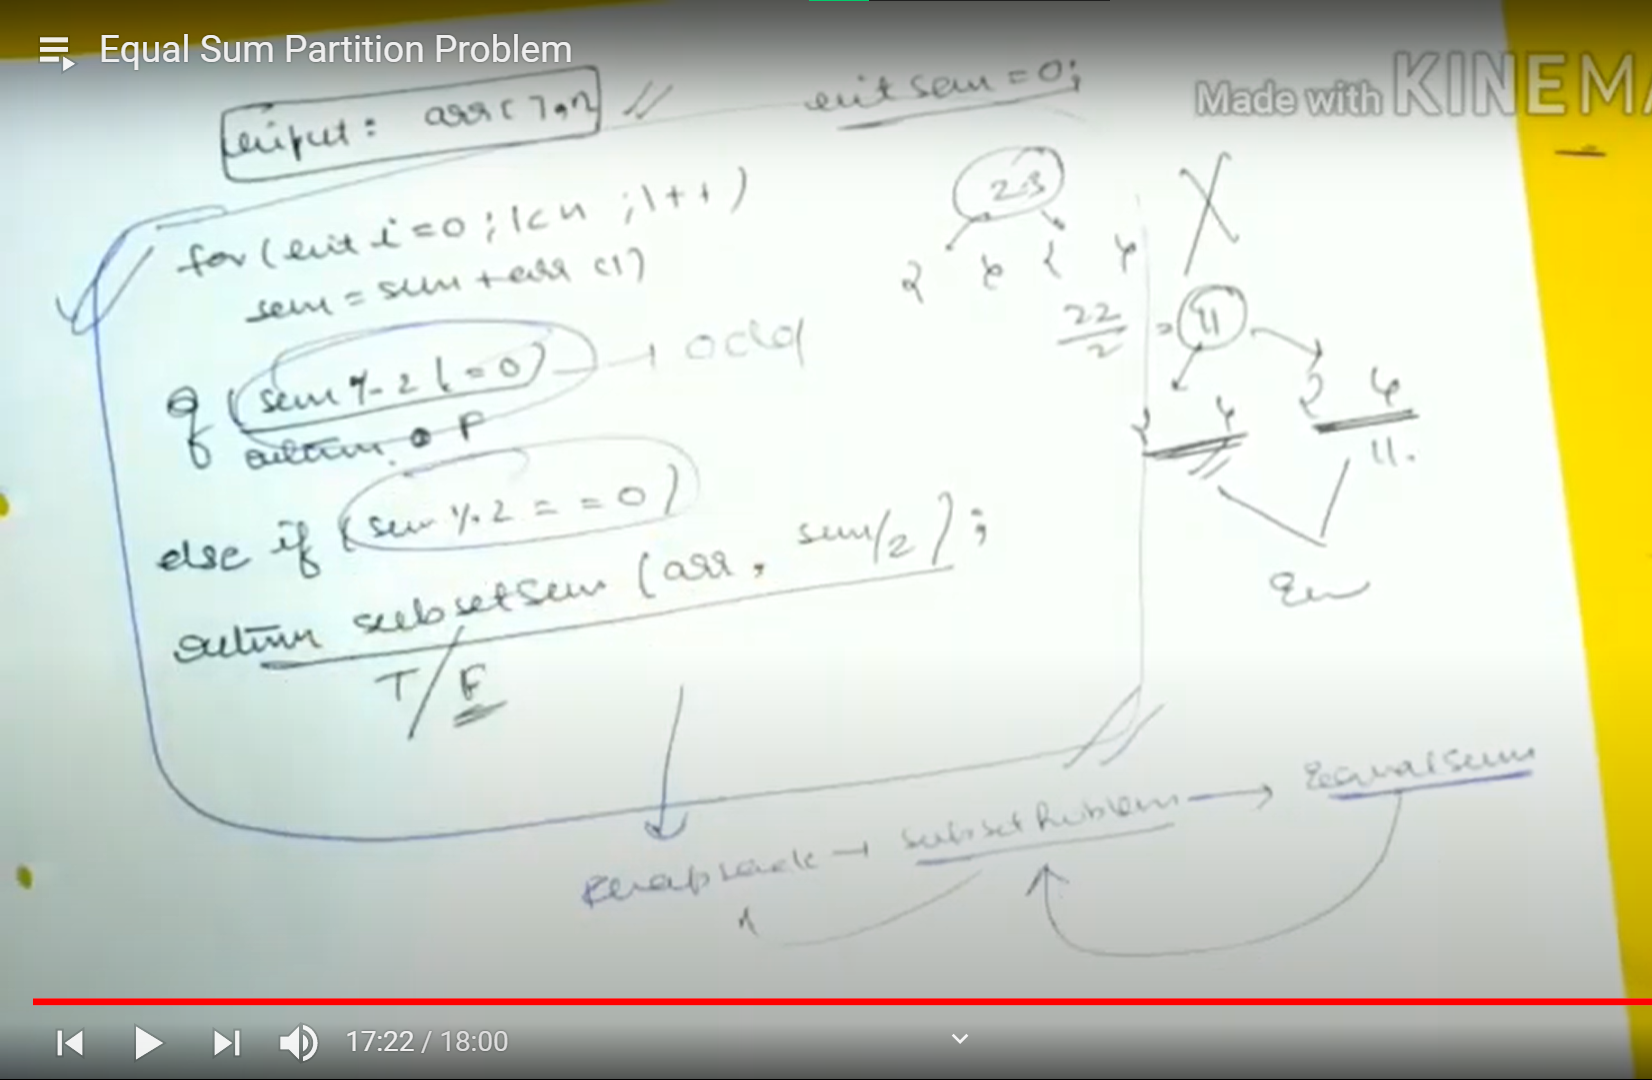 Equal Sum Partition Problem
Made with KINEMA
input: arr[], n
int sum = 0;
for (int i = 0; i < n; i++)
sum = sum + arr[i]
if (sum % 2 != 0) → odd
return F
else if (sum % 2 == 0)
return subsetsum (arr, sum/2);
T/F
23
22/2 = 11
11.
Knapsack → Subset Problem → Equal Sum
17:22 / 18:00